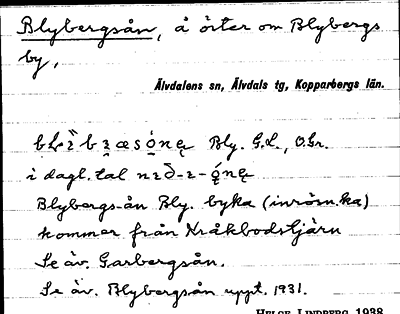 Blybergsån, å öster om Blybergs
by,
Älvdalens sn, Älvdals tg, Kopparbergs län.
Bly. G.L., O.Gr.
i dagl. tal
Blybergs-ån Bly. byka (inrösn.ka)
kommer från Kråkbodstjärn
Se äv. Garbergsån.
Se äv. Blybergsån uppt. 1931.
HELGE LINDBERG 1938